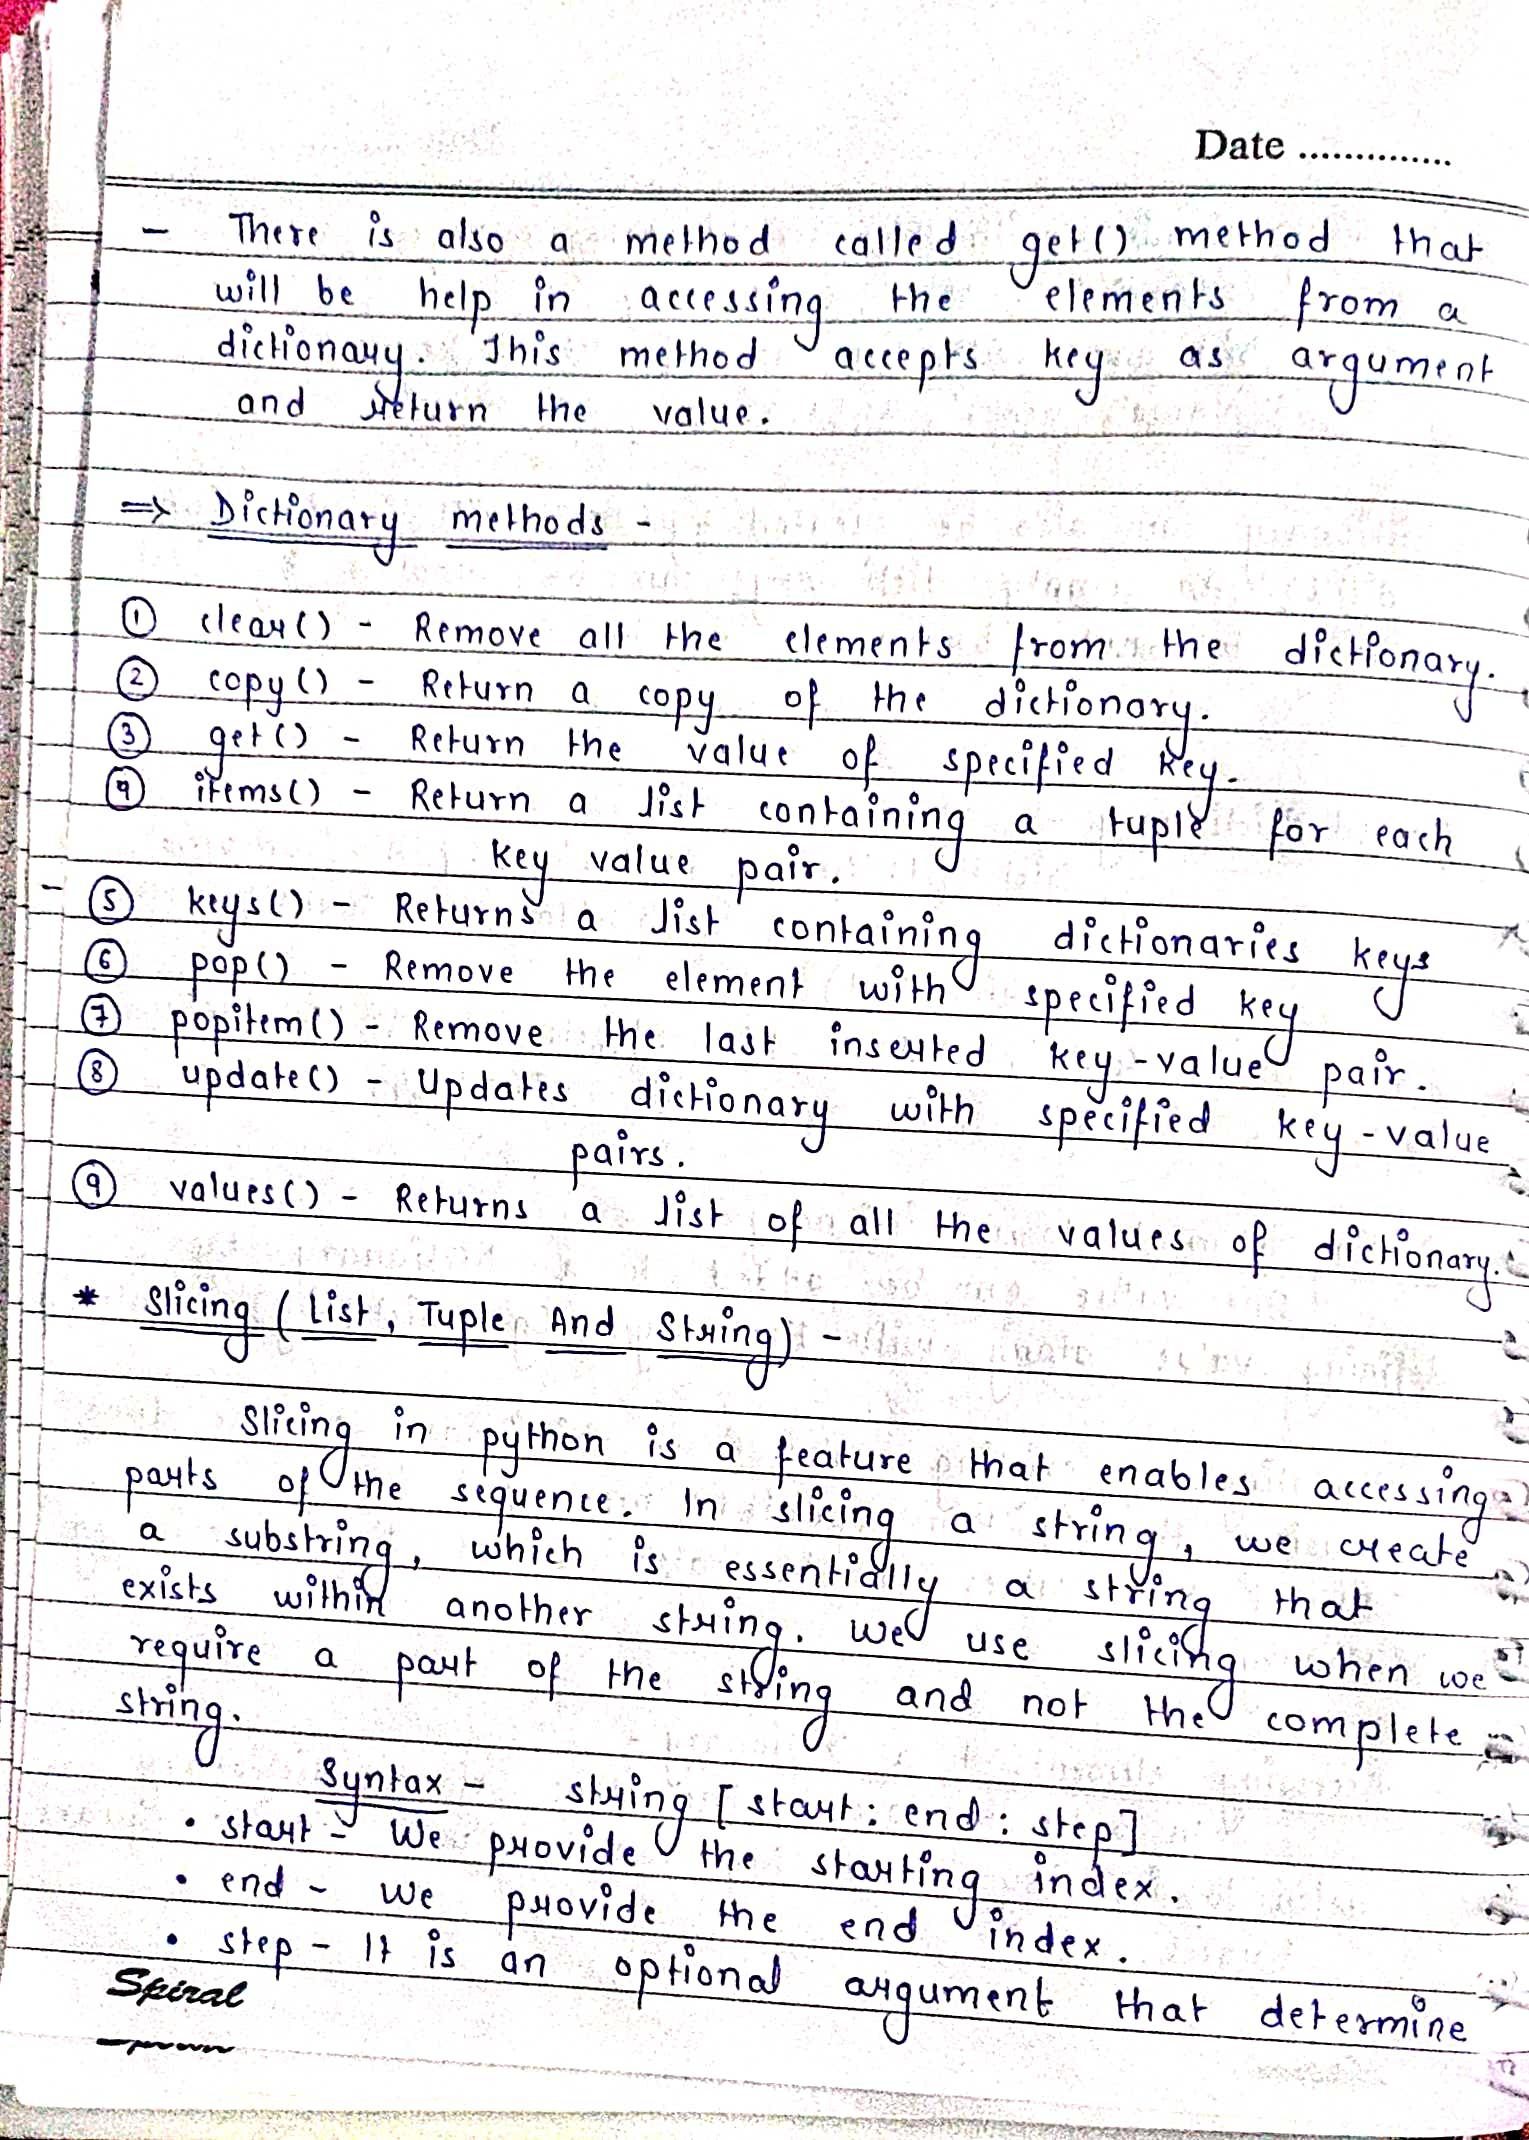 Date ..............
- There is also a method called get() method that
will be help in accessing the elements from a
dictionary. This method accepts key as argument
and return the value.
⇒ Dictionary methods -
① clear() - Remove all the elements from the dictionary.
② copy() - Return a copy of the dictionary.
③ get() - Return the value of specified key.
④ items() - Return a list containing a tuple for each
key value pair.
- ⑤ keys() - Returns a list containing dictionaries keys
⑥ pop() - Remove the element with specified key
⑦ popitem() - Remove the last inserted key-value pair.
⑧ update() - Updates dictionary with specified key-value
pairs.
⑨ values() - Returns a list of all the values of dictionary.
* Slicing (List, Tuple And String) -
Slicing in python is a feature that enables accessing
parts of the sequence. In slicing a string, we create
a substring, which is essentially a string that
exists within another string. We use slicing when we
require a part of the string and not the complete
string.
Syntax - string [start : end : step]
• start - We provide the starting index.
• end - We provide the end index.
• step - It is an optional argument that determine
Spiral